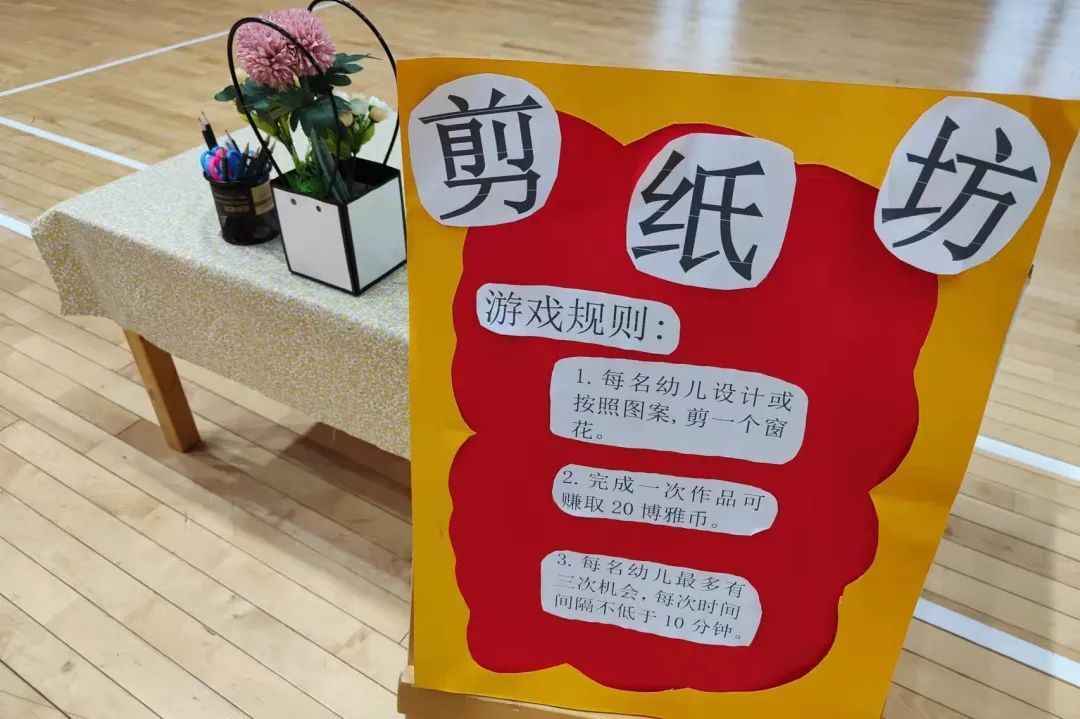 剪纸坊
游戏规则：
1. 每名幼儿设计或
按照图案，剪一个窗
花。
2. 完成一次作品可
赚取 20 博雅币。
3. 每名幼儿最多有
三次机会，每次时间
间隔不低于 10 分钟。